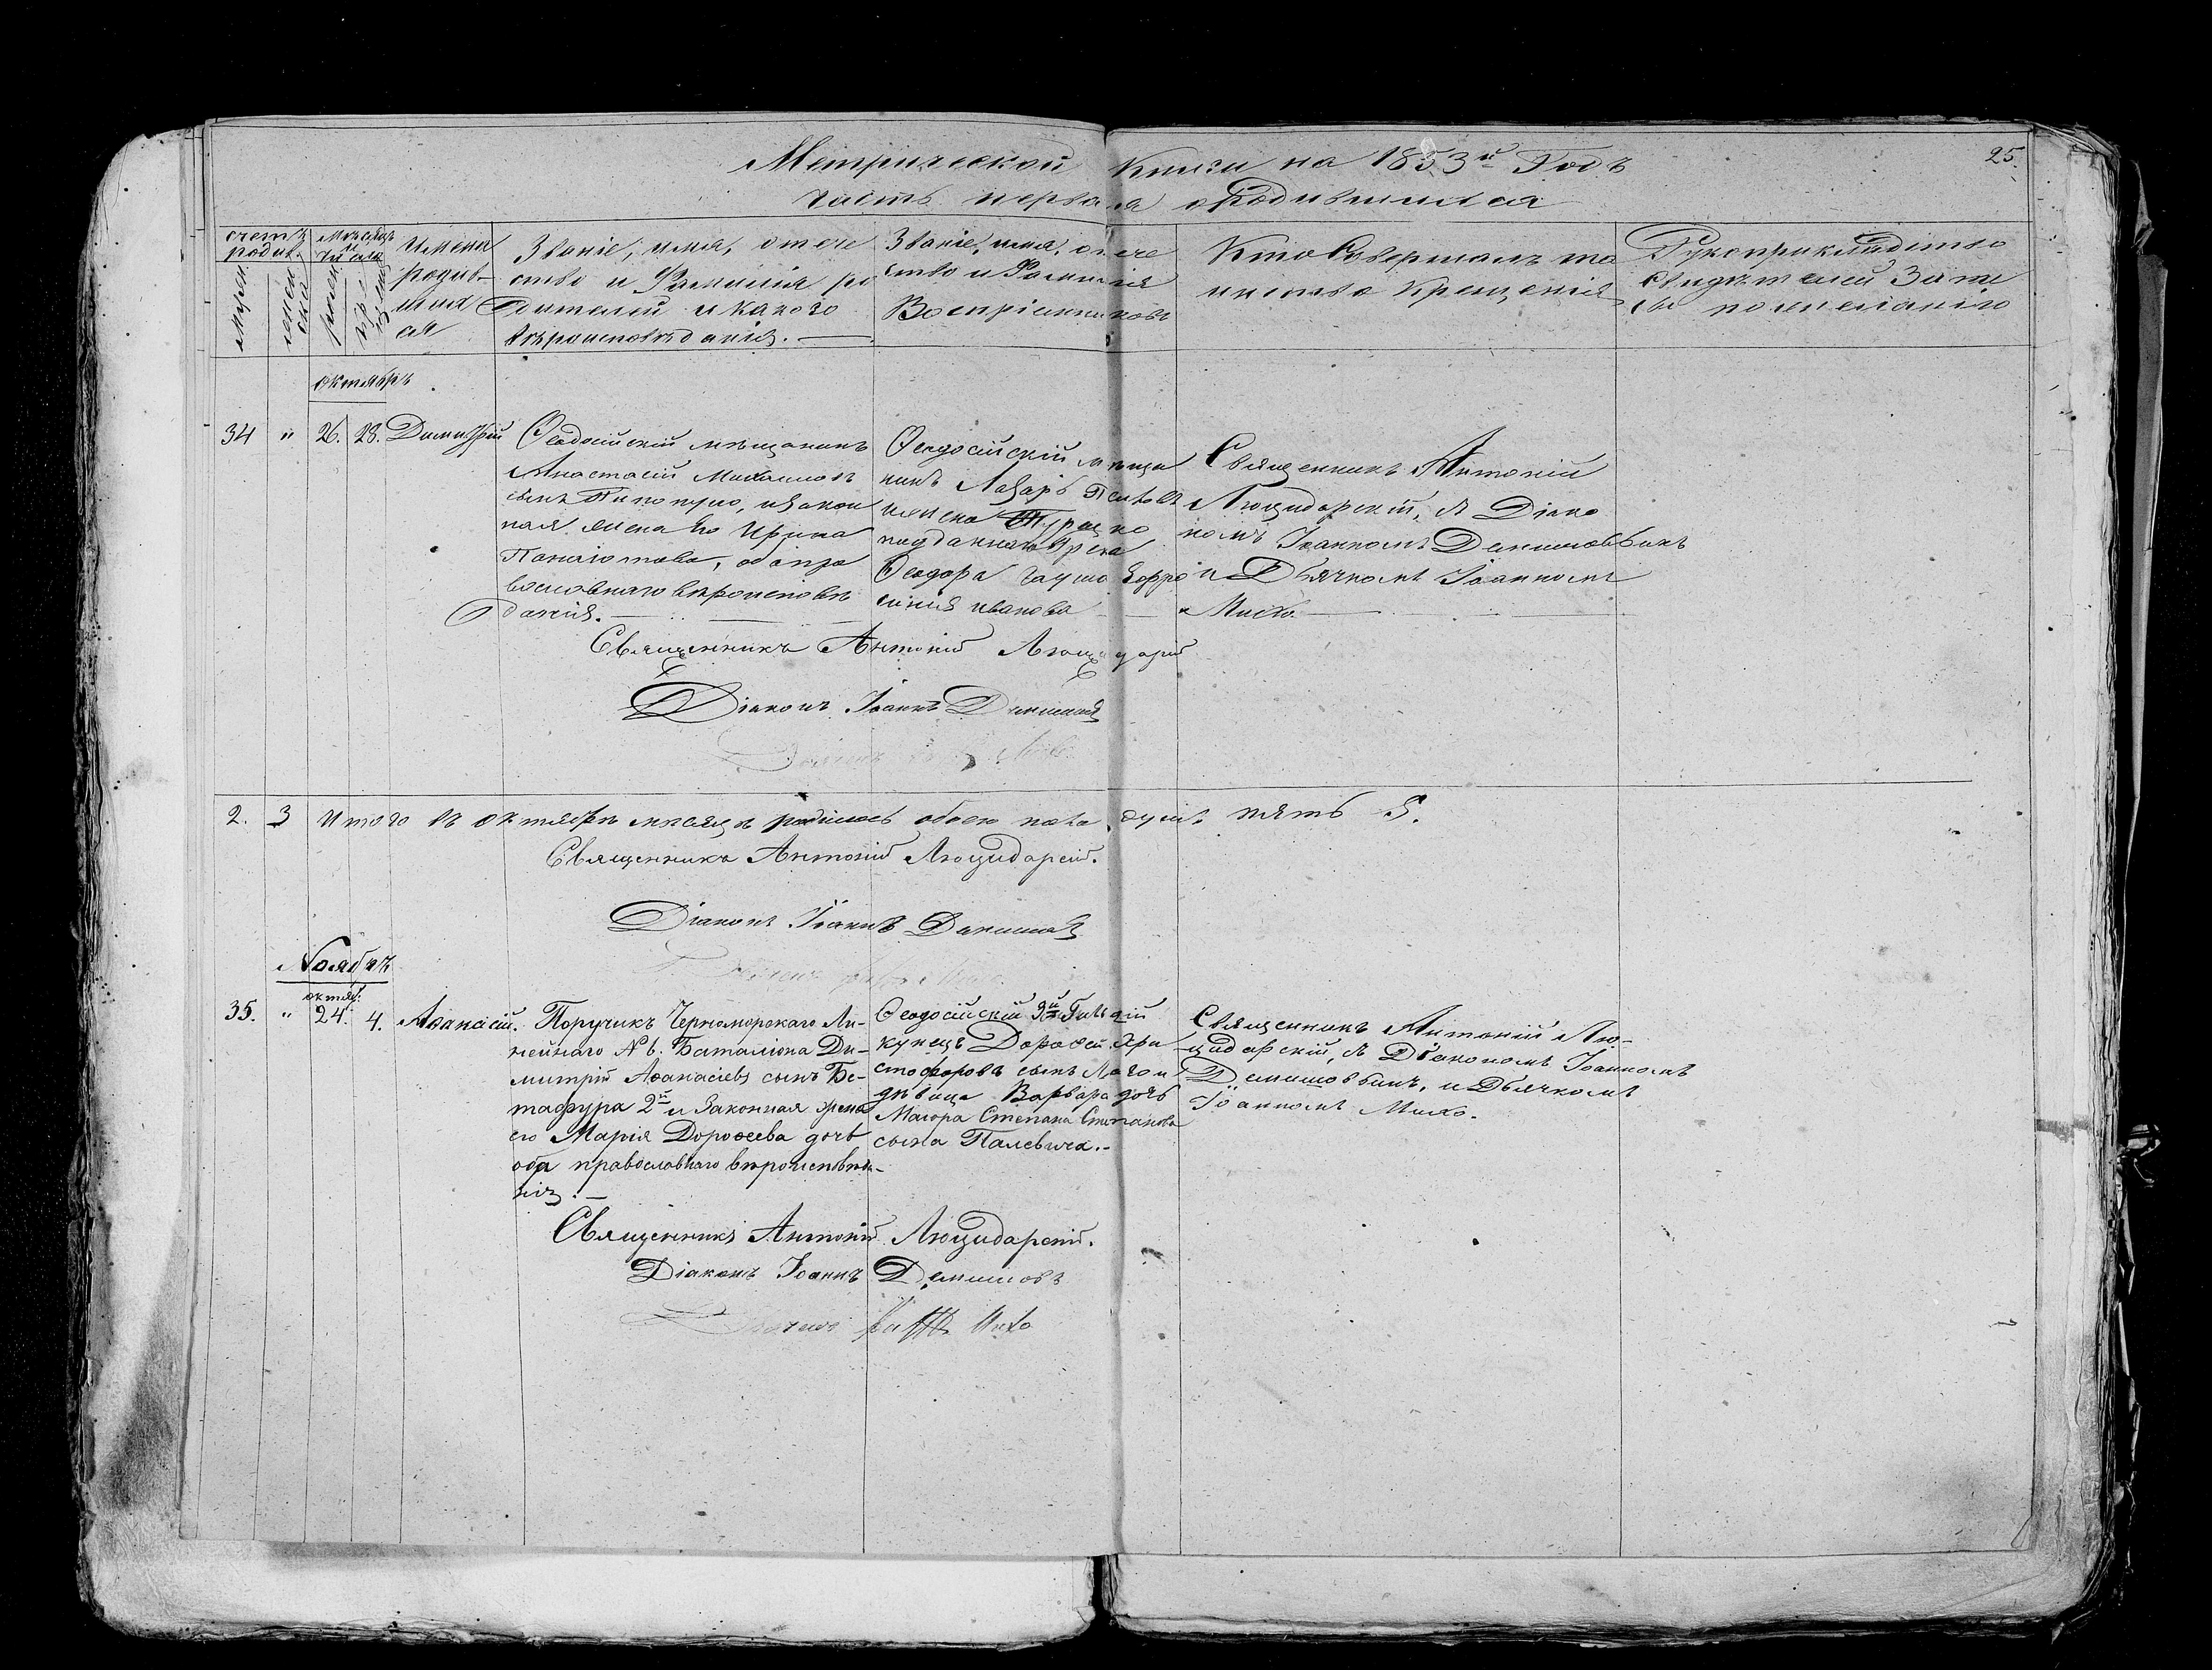 Метрической Книги на 1853й Годъ
25.
часть первая о Родившихся
счетъ родив.
Мужеска
женска
Мѣсяцъ и число
рожден.
крещен.
Имена родившихся
Званіе, имя, отече
ство и Фамилія ро
дителей и какого
вѣроисповѣданія. —
Званіе, имя, отече
ство и Фамилія
Воспріемниковъ
Кто Совершалъ та
инство Крещенія
Рукоприкладство
свидѣтелей Запи
си по желанію
октябрь
34 " 26. 28. Димитрій
Феодосійскій мѣщанинъ
Анастасій Михаиловъ
сынъ, и закон
ная жена Его Ирина
Панаіотова, оба пра
вославнаго вѣроисповѣ
данія. —
Феодосійскій мѣща
нинъ Лазарь
и жена Турецко
подданнаго Грека
Феодора Ефро
синія Иванова
Священникъ Антоній
Люцидарскій, съ Діако
номъ Іоанномъ Демишовымъ
и Дьячкомъ Іоанномъ
Михо. —
Священникъ Антоній Люцидарскій
Діаконъ Іоаннъ Демишовъ
2. 3 Итого въ октябрѣ мѣсяцѣ родилось обоего пола душъ пять 5.
Священникъ Антоній Люцидарскій.
Діаконъ Іоаннъ Демишовъ
Ноябрь
октяб:
35. " 24. 4. Аѳанасій.
Поручикъ Черноморскаго Ли-
нейнаго № 6. Баталіона Ди-
митрій Аѳанасіевъ сынъ Бе-
тафура 2й и Законная жена
его Марія Дороѳеева дочь
оба православнаго вѣроисповѣда-
нія. —
Феодосійскій 3й Гильдіи
купецъ Дороѳей Хри
стофоровъ сынъ и
дѣвица Варвара дочь
Маіора Степана Степанова
сына Палевича. -
Священникъ Антоній Лю-
цидарскій, съ Діакономъ Іоанномъ
Демишовымъ, и Дьячкомъ
Іоанномъ Михо.
Священникъ Антоній Люцидарскій.
Діаконъ Іоаннъ Демишовъ
Дьячекъ Михо